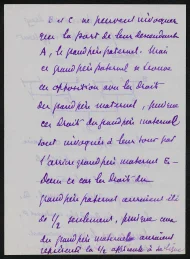 B et C ne peuvent invoquer
que la part de leur descendance
A, le grand père paternel. Mais
ce grand père paternel se trouve
en opposition avec les Droits
du grand père maternel, puisque
ces Droits du grand père maternel
sont invoqués à leur tour par
l'arrière grand père maternel E.
Donc ce cas les Droits du
grand père paternel auraient été
de 1/2 seulement, puisque ceux
du grand père maternel auraient
représenté la 1/2 afférente à sa ligne